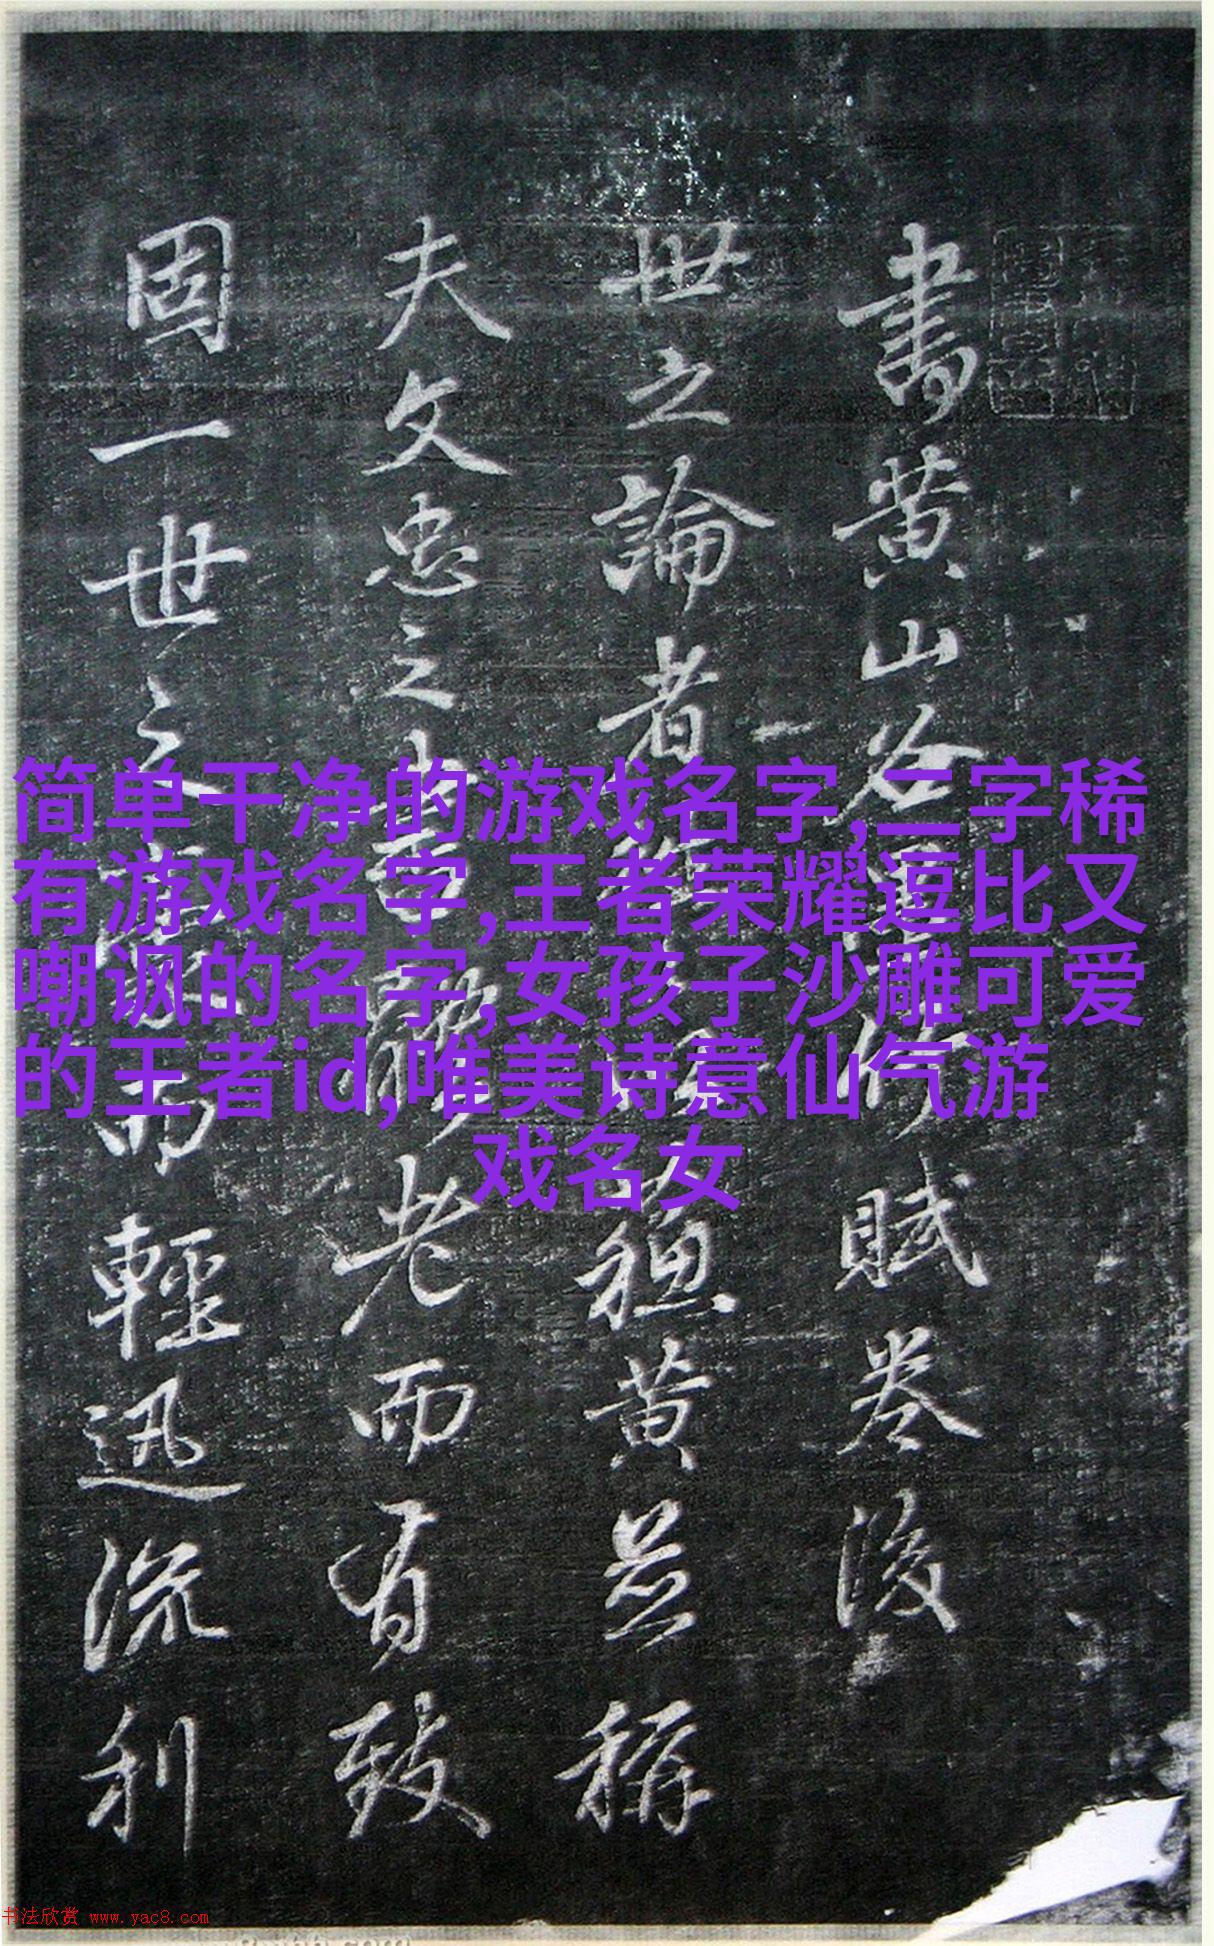 書黄山谷賦卷後
世之論者黄並稱
夫文忠之書老而有致
固一世之而輕迅流利
简单干净的游戏名字,二字稀
有游戏名字,王者荣耀逗比又
嘲讽的名字,女孩子沙雕可爱
的王者id,唯美诗意仙气游
戏名女
书法欣赏 www.yac8.com